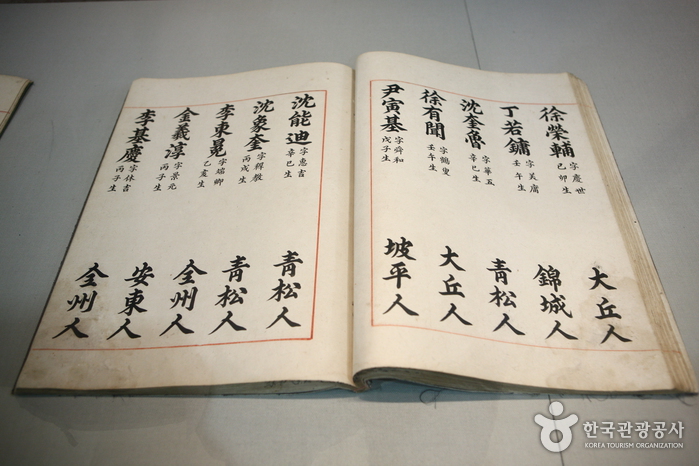 徐榮輔 字慶世 己卯生 大丘人
丁若鏞 字美庸 壬午生 錦城人
沈奎魯 字華五 辛巳生 青松人
徐有聞 字鶴叟 壬午生 大丘人
尹寅基 字舜和 戊子生 坡平人
沈能迪 字惠吉 辛巳生 青松人
沈象奎 字穉教 丙戌生 青松人
李東冕 字端卿 己亥生 全州人
金羲淳 字景元 丙子生 安東人
李基慶 字休吉 丙子生 全州人
한국관광공사
KOREA TOURISM ORGANIZATION